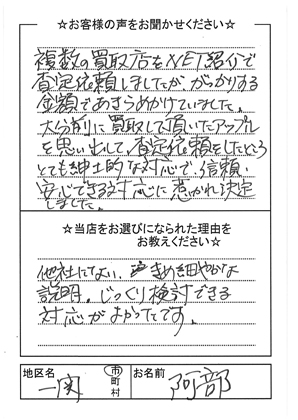 ☆お客様の声をお聞かせください☆
複数の買取店をNET紹介で
査定依頼しましたが、がっかりする
金額であきらめかけていました。
大分前に買取して頂いたアップル
を思い出して、査定依頼をしたところ
とても紳士的な対応で、信頼・
安心できる対応に惹かれ決定
しました。
☆当店をお選びになられた理由を
お教えください☆
他社にない、きめ細やかな
説明。じっくり検討できる
対応がよかったです。
地区名 一関 市町村 お名前 阿部